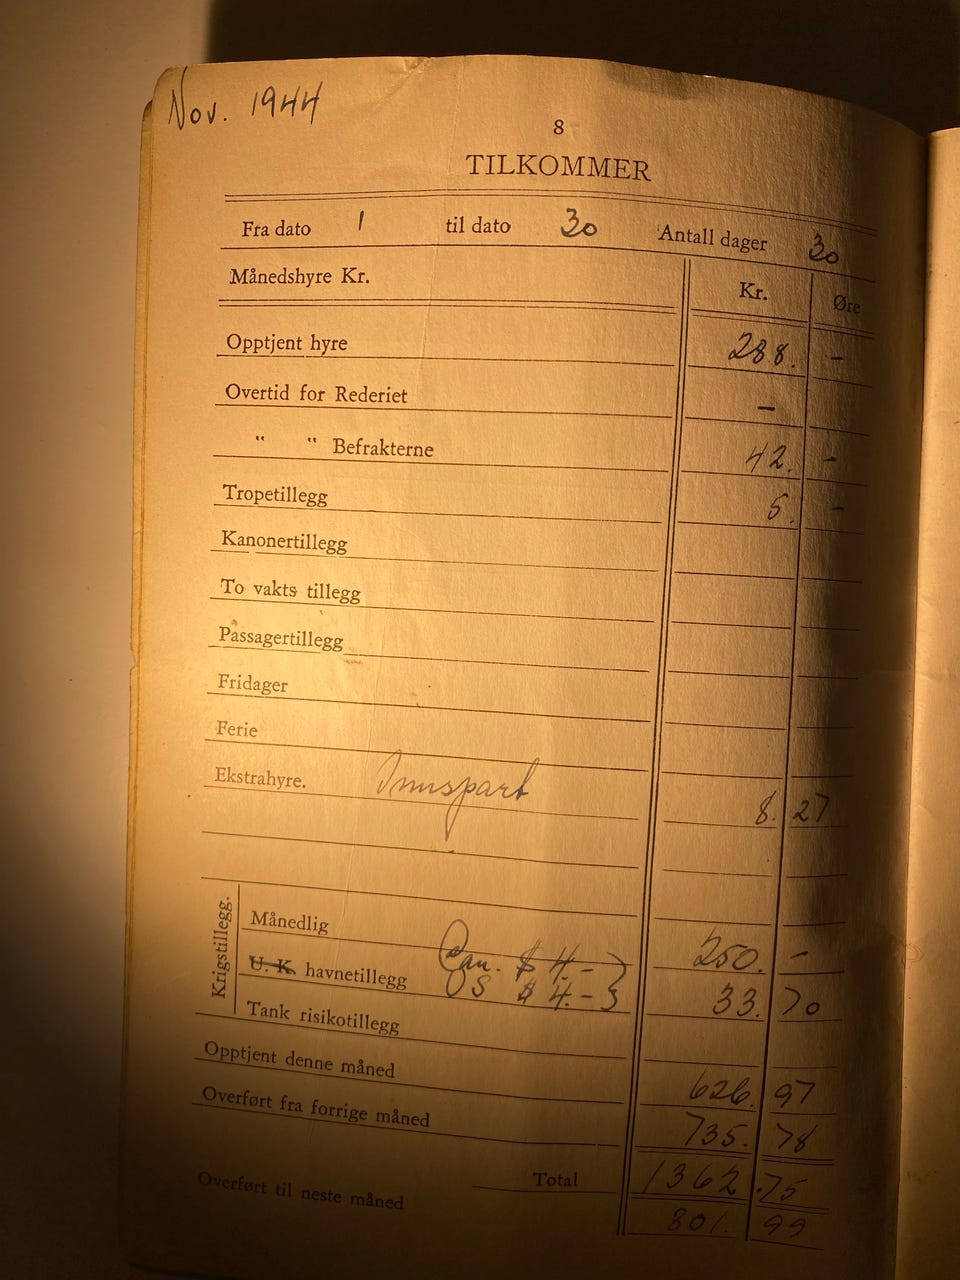 Nov. 1944
8
TILKOMMER
Fra dato 1 til dato 30 Antall dager 30
Månedshyre Kr. Kr. Øre
Opptjent hyre 288. -
Overtid for Rederiet -
" " Befrakterne 42. -
Tropetillegg 5. -
Kanonertillegg
To vakts tillegg
Passagertillegg
Fridager
Ferie
Ekstrahyre. 8. 27
Krigstillegg.
Månedlig 250. -
U. K. havnetillegg Can. $ 4.- } 33. 70
US $ 4.- }
Tank risikotillegg
Opptjent denne måned 626. 97
Overført fra forrige måned 735. 78
Total 1362.75
Overført til neste måned 801. 99